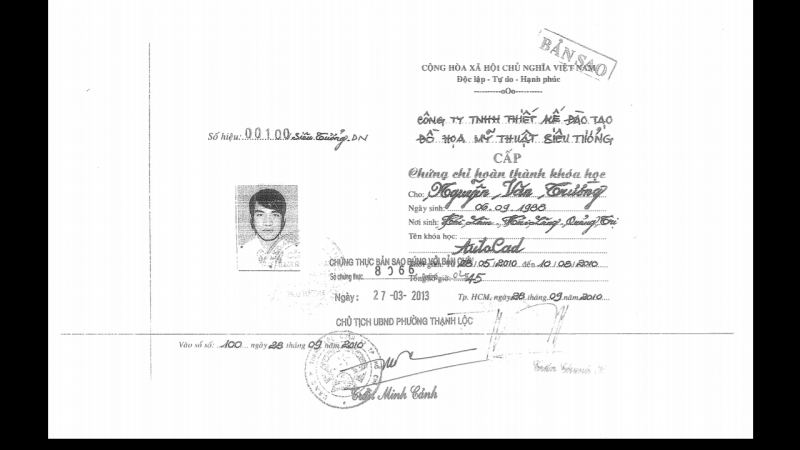 BẢN SAO
CỘNG HÒA XÃ HỘI CHỦ NGHĨA VIỆT NAM
Độc lập - Tự do - Hạnh phúc
----------oOo----------
CÔNG TY TNHH THIẾT KẾ ĐÀO TẠO
ĐỒ HỌA MỸ THUẬT SIÊU TƯỞNG
Số hiệu: 00100 Siêu Tưởng DN
CẤP
Chứng chỉ hoàn thành khóa học
Cho: Nguyễn Văn Trường
Ngày sinh: 06.09.1988
Nơi sinh: Hải Lăng, Quảng Trị
Tên khóa học:
AutoCad
CHỨNG THỰC BẢN SAO ĐÚNG VỚI BẢN CHÍNH
28/05/2010 đến 10/08/2010
Số chứng thực 8066
Tổng số giờ: 45
Ngày: 27-03-2013
Tp. HCM, ngày 28 tháng 09 năm 2010
CHỦ TỊCH UBND PHƯỜNG THẠNH LỘC
Vào sổ số: 100 ngày 28 tháng 09 năm 2010
Trần Minh Cảnh